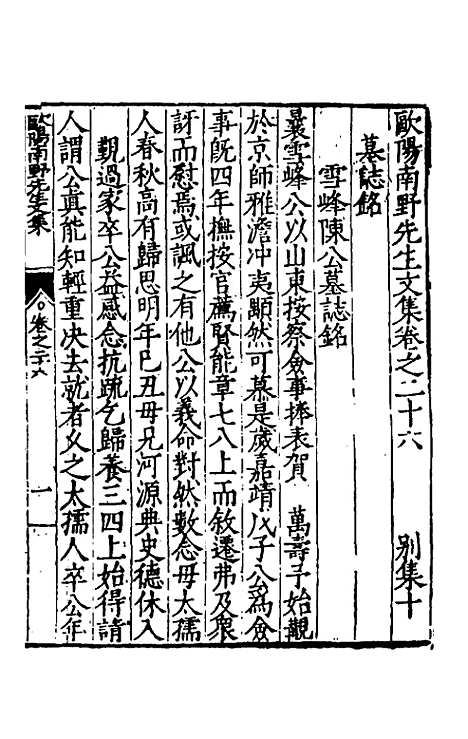 歐陽南野先生文集卷之二十六 別集十
墓誌銘
雪峰陳公墓誌銘
曩雪峰公以山東按察僉事捧表賀 萬壽予始覯
於京師雅澹冲夷顒然可慕是歲嘉靖戊子公爲僉
事旣四年撫按官薦賢能章七八上而敘遷弗及衆
訝而慰焉或諷之有他公以義命對然數念毋太孺
人春秋高有歸思明年巳丑毋兄河源典史德休入
覲過家卒公益感念抗疏乞歸養三四上始得請
人謂公真能知輕重决去就者乆之太孺人卒公年
歐陽南野先生文集
卷之二十六
一